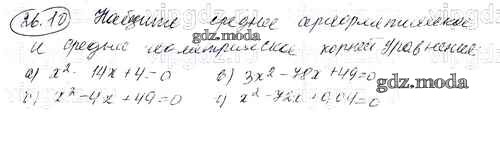 26.10 Найдите среднее арифметическое
и среднее геометрическое корней уравнения:
а) x² - 14x + 4 = 0 в) 3x² - 78x + 49 = 0
б) x² - 4x + 49 = 0 г) x² - 72x + 0,04 = 0
gdz.moda
gdz.moda
gdz.moda